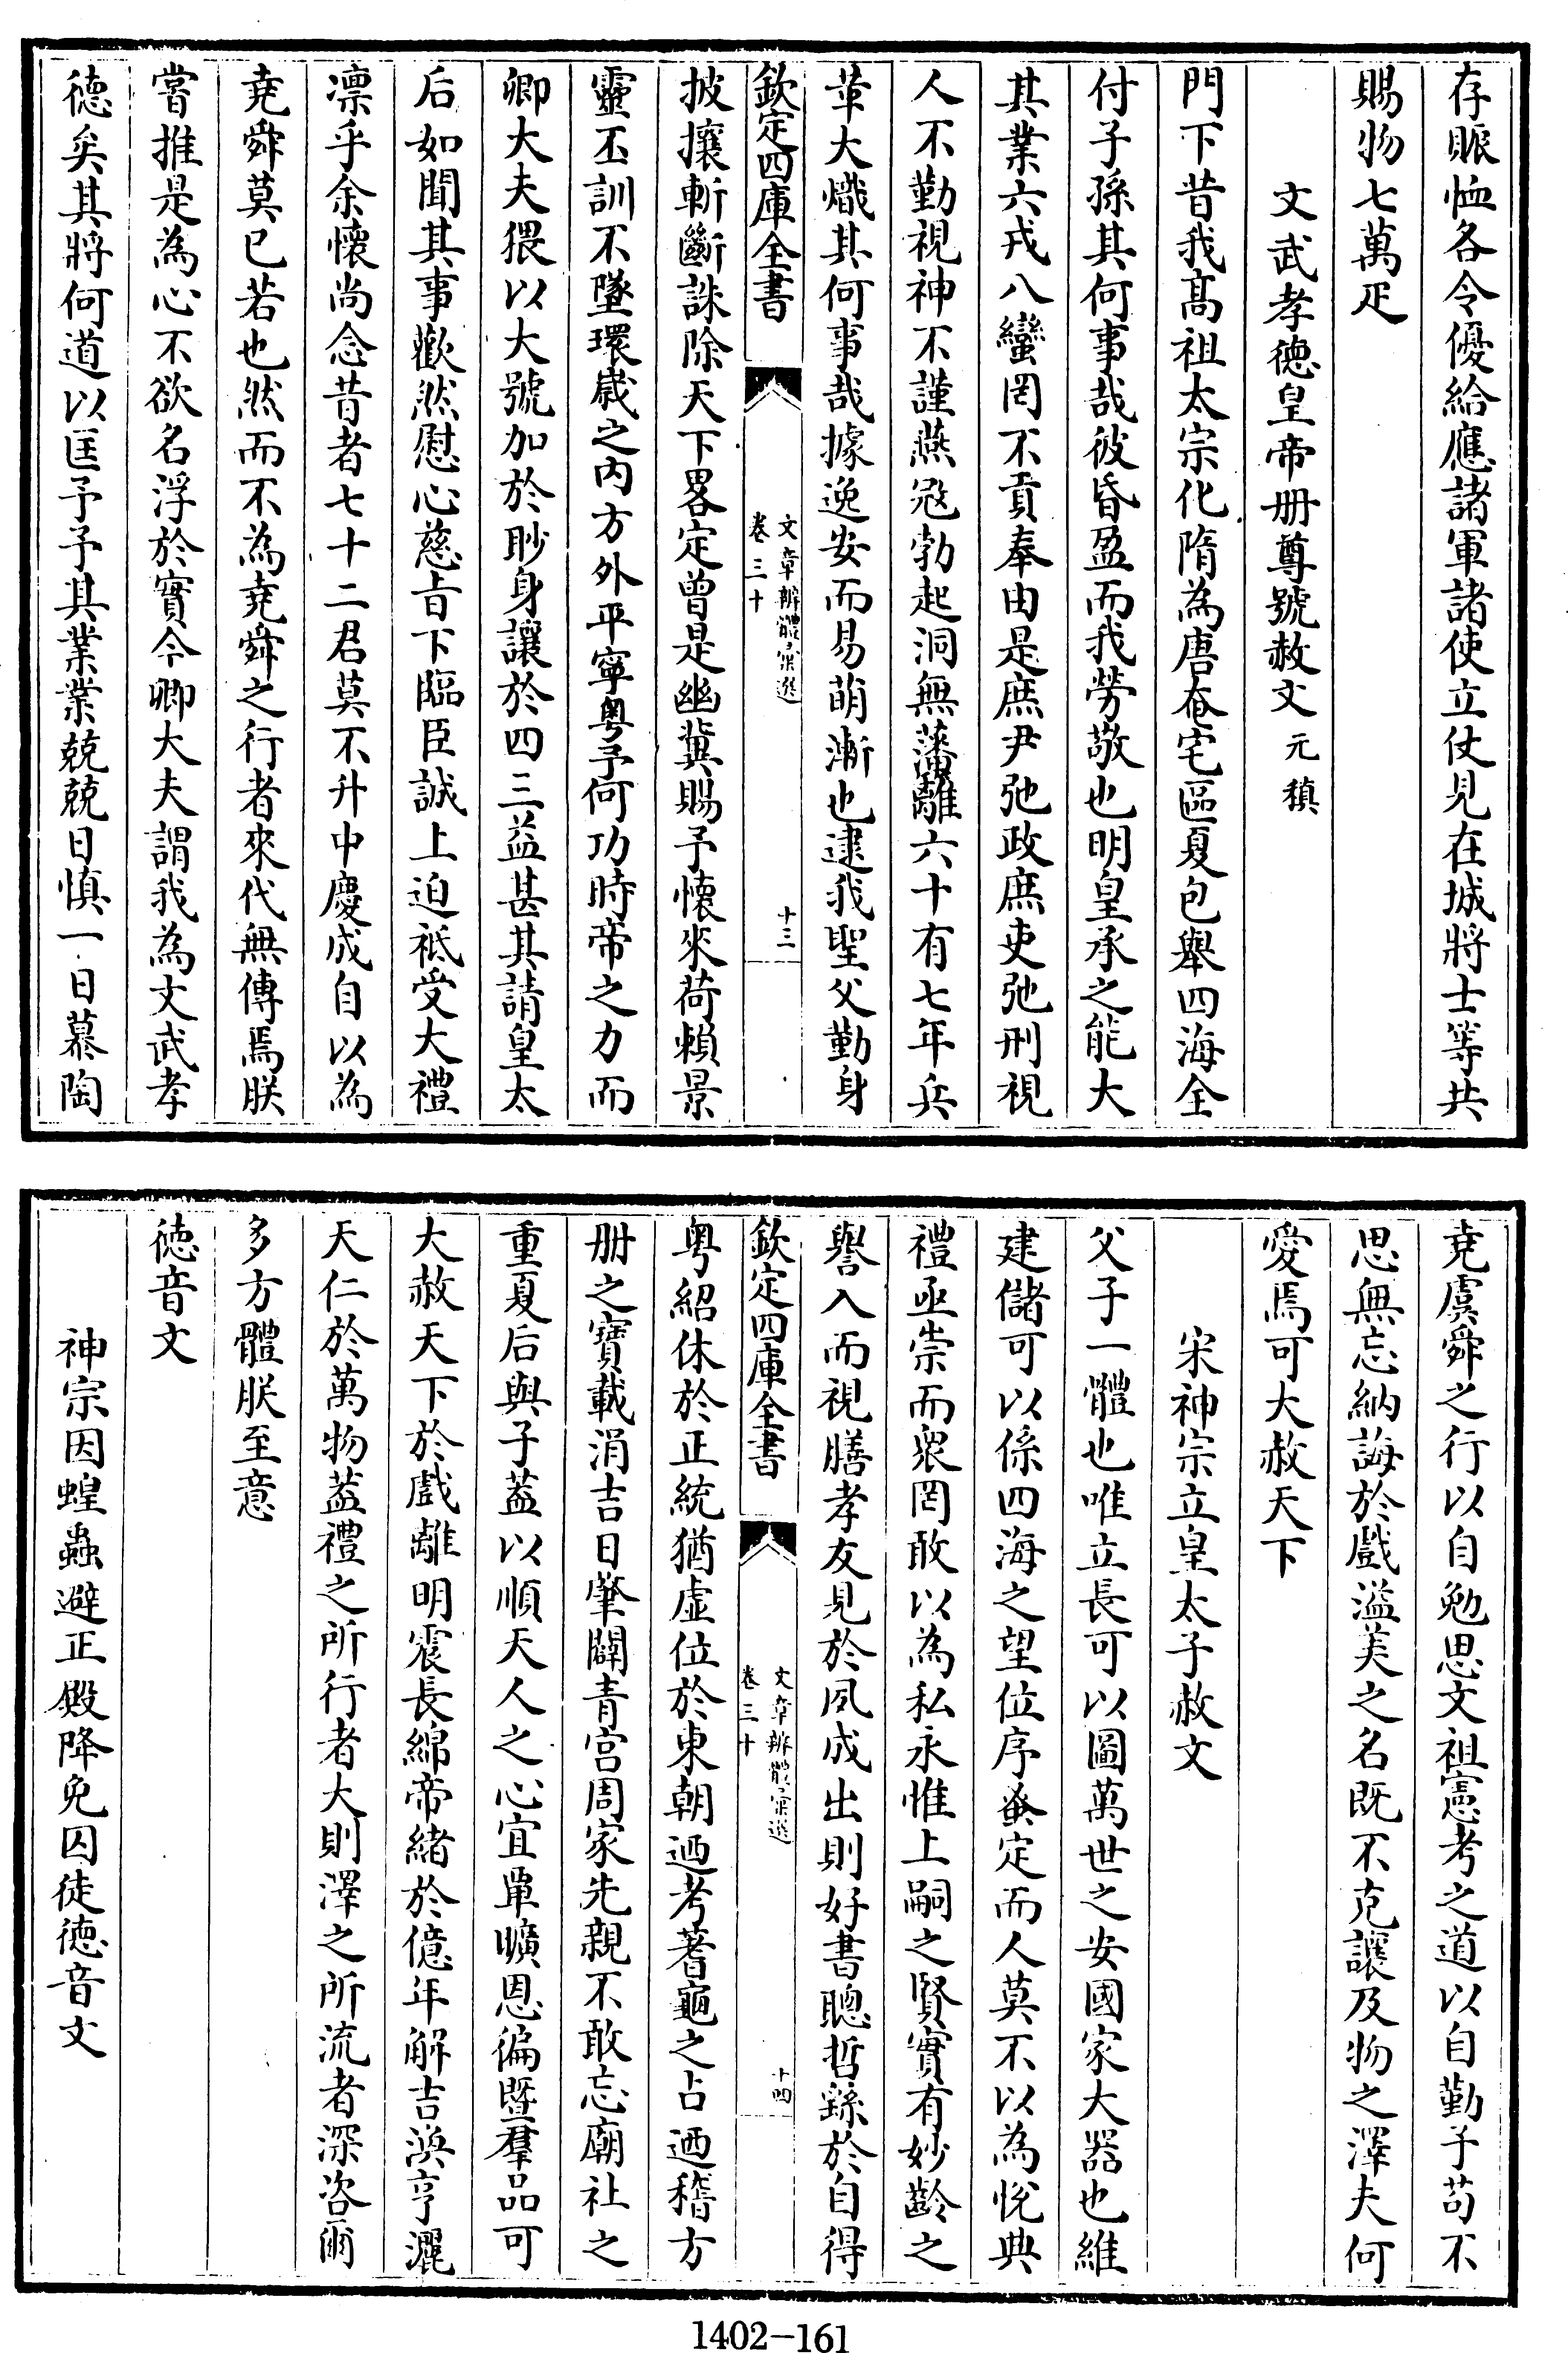 存賑恤各令優給應諸軍諸使立仗見在城將士等共
賜物七萬疋
文武孝徳皇帝册尊號赦文 元稹
門下昔我髙祖太宗化隋為唐奄宅區夏包舉四海全
付子孫其何事哉彼昏盈而我勞敬也明皇承之能大
其業六戎八蠻罔不貢奉由是庶尹弛政庶吏弛刑視
人不勤視神不謹燕宼勃起洞無藩離六十有七年兵
革大熾其何事哉據逸安而易萌漸也逮我聖父勤身
欽定四庫全書
文章辨體彚選
卷三十
十三
披攘斬斷誅除天下畧定曽是幽冀賜予懷來荷賴景
靈丕訓不墜環嵗之内方外平寧粤予何功時帝之力而
卿大夫猥以大號加於眇身讓於四三益甚其請皇太
后如聞其事歡然慰心慈㫖下臨臣誠上迫祗受大禮
凛乎余懷尚念昔者七十二君莫不升中慶成自以為
堯舜莫已若也然而不為堯舜之行者來代無傳焉朕
嘗推是為心不欲名浮於實今卿大夫謂我為文武孝
徳矣其將何道以匡予予其業業兢兢日慎一日慕陶
堯虞舜之行以自勉思文祖憲考之道以自勤予苟不
思無忘納誨於戲溢美之名既不克讓及物之澤夫何
愛焉可大赦天下
宋神宗立皇太子赦文
父子一體也唯立長可以圖萬世之安國家大器也維
建儲可以係四海之望位序蚤定而人莫不以為悅典
禮亟崇而衆罔敢以為私永惟上嗣之賢實有妙齡之
譽入而視膳孝友見於夙成出則好書聰哲繇於自得
欽定四庫全書
文章辨體彚選
卷三十
十四
粤紹休於正統猶虚位於東朝迺考蓍龜之占迺稽方
册之寶載涓吉日肇闢青宫周家先親不敢忘廟社之
重夏后與子葢以順天人之心宜覃曠恩徧暨羣品可
大赦天下於戲離明震長綿帝緒於億年解吉渙亨灑
天仁於萬物葢禮之所行者大則澤之所流者深咨爾
多方體朕至意
徳音文
神宗因蝗蟲避正殿降免囚徒徳音文
1402-161